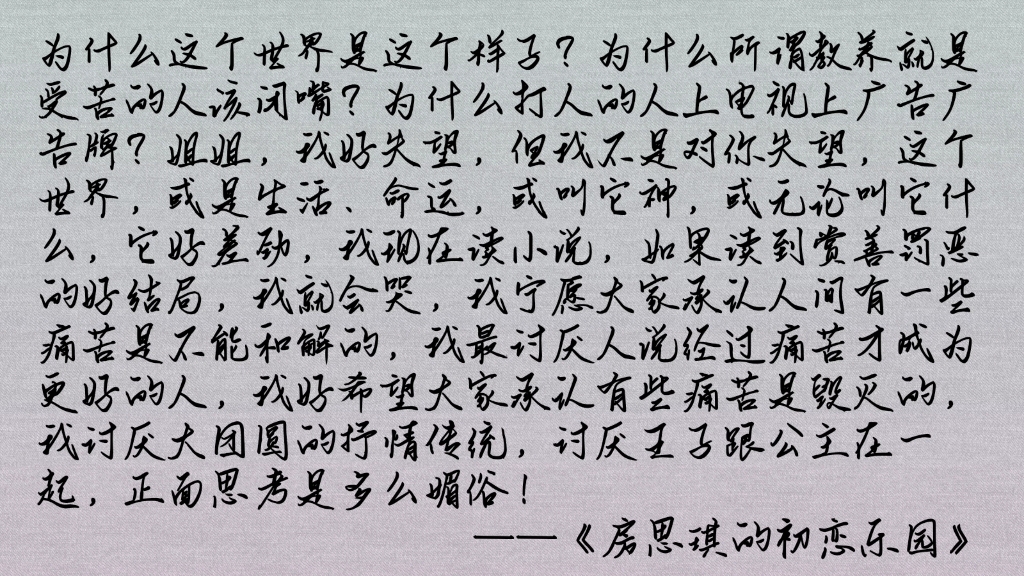 为什么这个世界是这个样子？为什么所谓教养就是
受苦的人该闭嘴？为什么打人的人上电视上广告广
告牌？姐姐，我好失望，但我不是对你失望，这个
世界，或是生活、命运，或叫它神，或无论叫它什
么，它好差劲，我现在读小说，如果读到赏善罚恶
的好结局，我就会哭，我宁愿大家承认人间有一些
痛苦是不能和解的，我最讨厌人说经过痛苦才成为
更好的人，我好希望大家承认有些痛苦是毁灭的，
我讨厌大团圆的抒情传统，讨厌王子跟公主在一
起，正面思考是多么媚俗！
——《房思琪的初恋乐园》